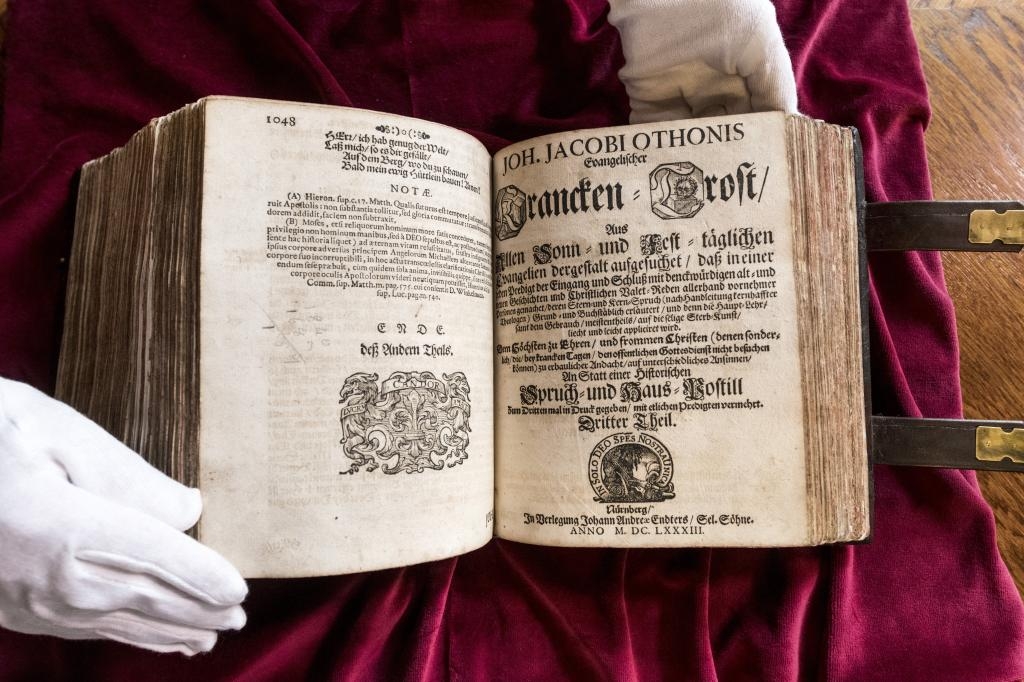 1048
HErr/ ich hab genug der Welt/
Laß mich/ so es dir gefällt/
Auf dem Berg/ wo du zu schauen/
Bald mein ewig Hüttlein bauen! Amen!
NOTÆ.
(A) Hieron. sup. c. 17. Matth. Qualis futurus est tempore
ruit Apostolis: non substantia tollitur, sed gloria commutatur
dorem addidit, faciem non subtraxit.
(B) Moses, etsi reliquorum hominum more
privilegio non hominum manibus, sed à DEO sepultus est, ac
hac historia liquet) ad æternam vitam resuscitatus,
ipsius corpore adversus principem Angelorum Michaelem
corpore suo incorruptibili, in hoc actu
endum sese præbuit, cum quidem sola anima, invisibilis
corporeis oculis Apostolorum videri nequitquam potuisset.
Comm. sup. Matth. m. pag. 575. cui consentit D. Winckelmann.
sup. Luc. pag. m. 540.
ENDE.
deß Andern Theils.
JOH. JACOBI OTHONIS
Evangelischer
Krancken - Trost/
Aus
Allen Sonn- und Fest-täglichen
Evangelien dergestalt aufgesuchet/ daß in einer
jeden Predigt der Eingang und Schluß mit denckwürdigen alt- und
neuen Geschichten und Christlichen Valet-Reden allerhand vornehmer
Personen gemachet/ deren Stern und Kern-Spruch (nach Handleitung kernhaffter
Theologen) Grund- und Buchstäblich erläutert/ und denn die Haupt-Lehr/
samt dem Gebrauch/ meistentheils/ auf die selige Sterb-Kunst/
liecht und leicht appliciret wird.
Dem Höchsten zu Ehren/ und frommen Christen (denen sonder-
lich/ die/ bey krancken Tagen/ den offentlichen Gottesdienst nicht besuchen
können) zu erbaulicher Andacht/ auf unterschiedliches Ansinnen/
An Statt einer Historischen
Spruch- und Haus-Postill
Zum Dritten mal in Druck gegeben/ mit etlichen Predigten vermehrt.
Dritter Theil.
IN SOLO DEO SPES NOSTRA UNICA
Nürnberg/
In Verlegung Johann Andreæ Endters/ Sel. Söhne.
ANNO M. DC. LXXXIII.